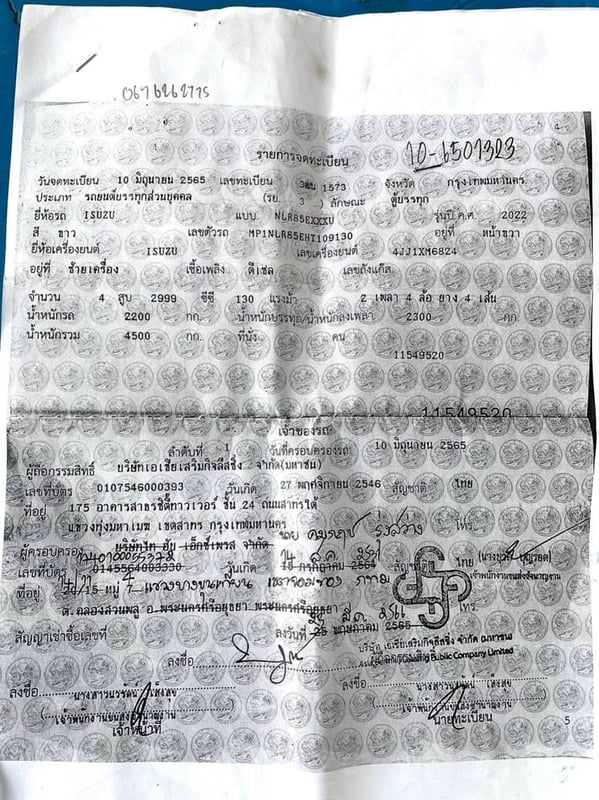 0676262775
รายการจดทะเบียน
10-6501323
วันจดทะเบียน 10 มิถุนายน 2565 เลขทะเบียน 3ฒน 1573 จังหวัด กรุงเทพมหานคร
ประเภท รถยนต์บรรทุกส่วนบุคคล (รย. 3 ) ลักษณะ ตู้บรรทุก
ยี่ห้อรถ ISUZU แบบ NLR85EXXXU รุ่นปี ค.ศ. 2022
สี ขาว เลขตัวรถ MP1NLR85EHT109130 อยู่ที่ หน้าขวา
ยี่ห้อเครื่องยนต์ ISUZU เลขเครื่องยนต์ 4JJ1XM6824
อยู่ที่ ซ้ายเครื่อง เชื้อเพลิง ดีเซล เลขถังแก๊ส
จำนวน 4 สูบ 2999 ซีซี 130 แรงม้า 2 เพลา 4 ล้อ ยาง 4 เส้น
น้ำหนักรถ 2200 กก. น้ำหนักบรรทุก/น้ำหนักลงเพลา 2300 กก
น้ำหนักรวม 4500 กก. ที่นั่ง คน
11549520
11549520
เจ้าของรถ
ลำดับที่ 1 วันที่ครอบครองรถ 10 มิถุนายน 2565
ผู้ถือกรรมสิทธิ์ บริษัทเอเซียเสริมกิจลีสซิ่ง จำกัด(มหาชน)
เลขที่บัตร 0107546000393 วันเกิด 27 พฤศจิกายน 2546 สัญชาติ ไทย
ที่อยู่ 175 อาคารสาธรซิตี้ทาวเวอร์ ชั้น 24 ถนนสาทรใต้
แขวงทุ่งมหาเมฆ เขตสาทร กรุงเทพมหานคร โทร.
ผู้ครอบครอง เอ็กซ์เพรส จำกัด
เลขที่บัตร 0145564003330 วันเกิด สัญชาติ ไทย
เจ้าพนักงานขนส่งชำนาญงาน
ที่อยู่ /15 หมู่ 4
ต.คลองสวนพลู อ.พระนครศรีอยุธยา พระนครศรีอยุธยา โทร.
สัญญาเช่าซื้อเลขที่ ลงวันที่ 25 พฤษภาคม 2565
บริษัท เอเซียเสริมกิจลีสซิ่ง จำกัด (มหาชน)
Public Company Limited
ลงชื่อ
ลงชื่อ ลงชื่อ
เจ้าหน้าที่ นายทะเบียน
5